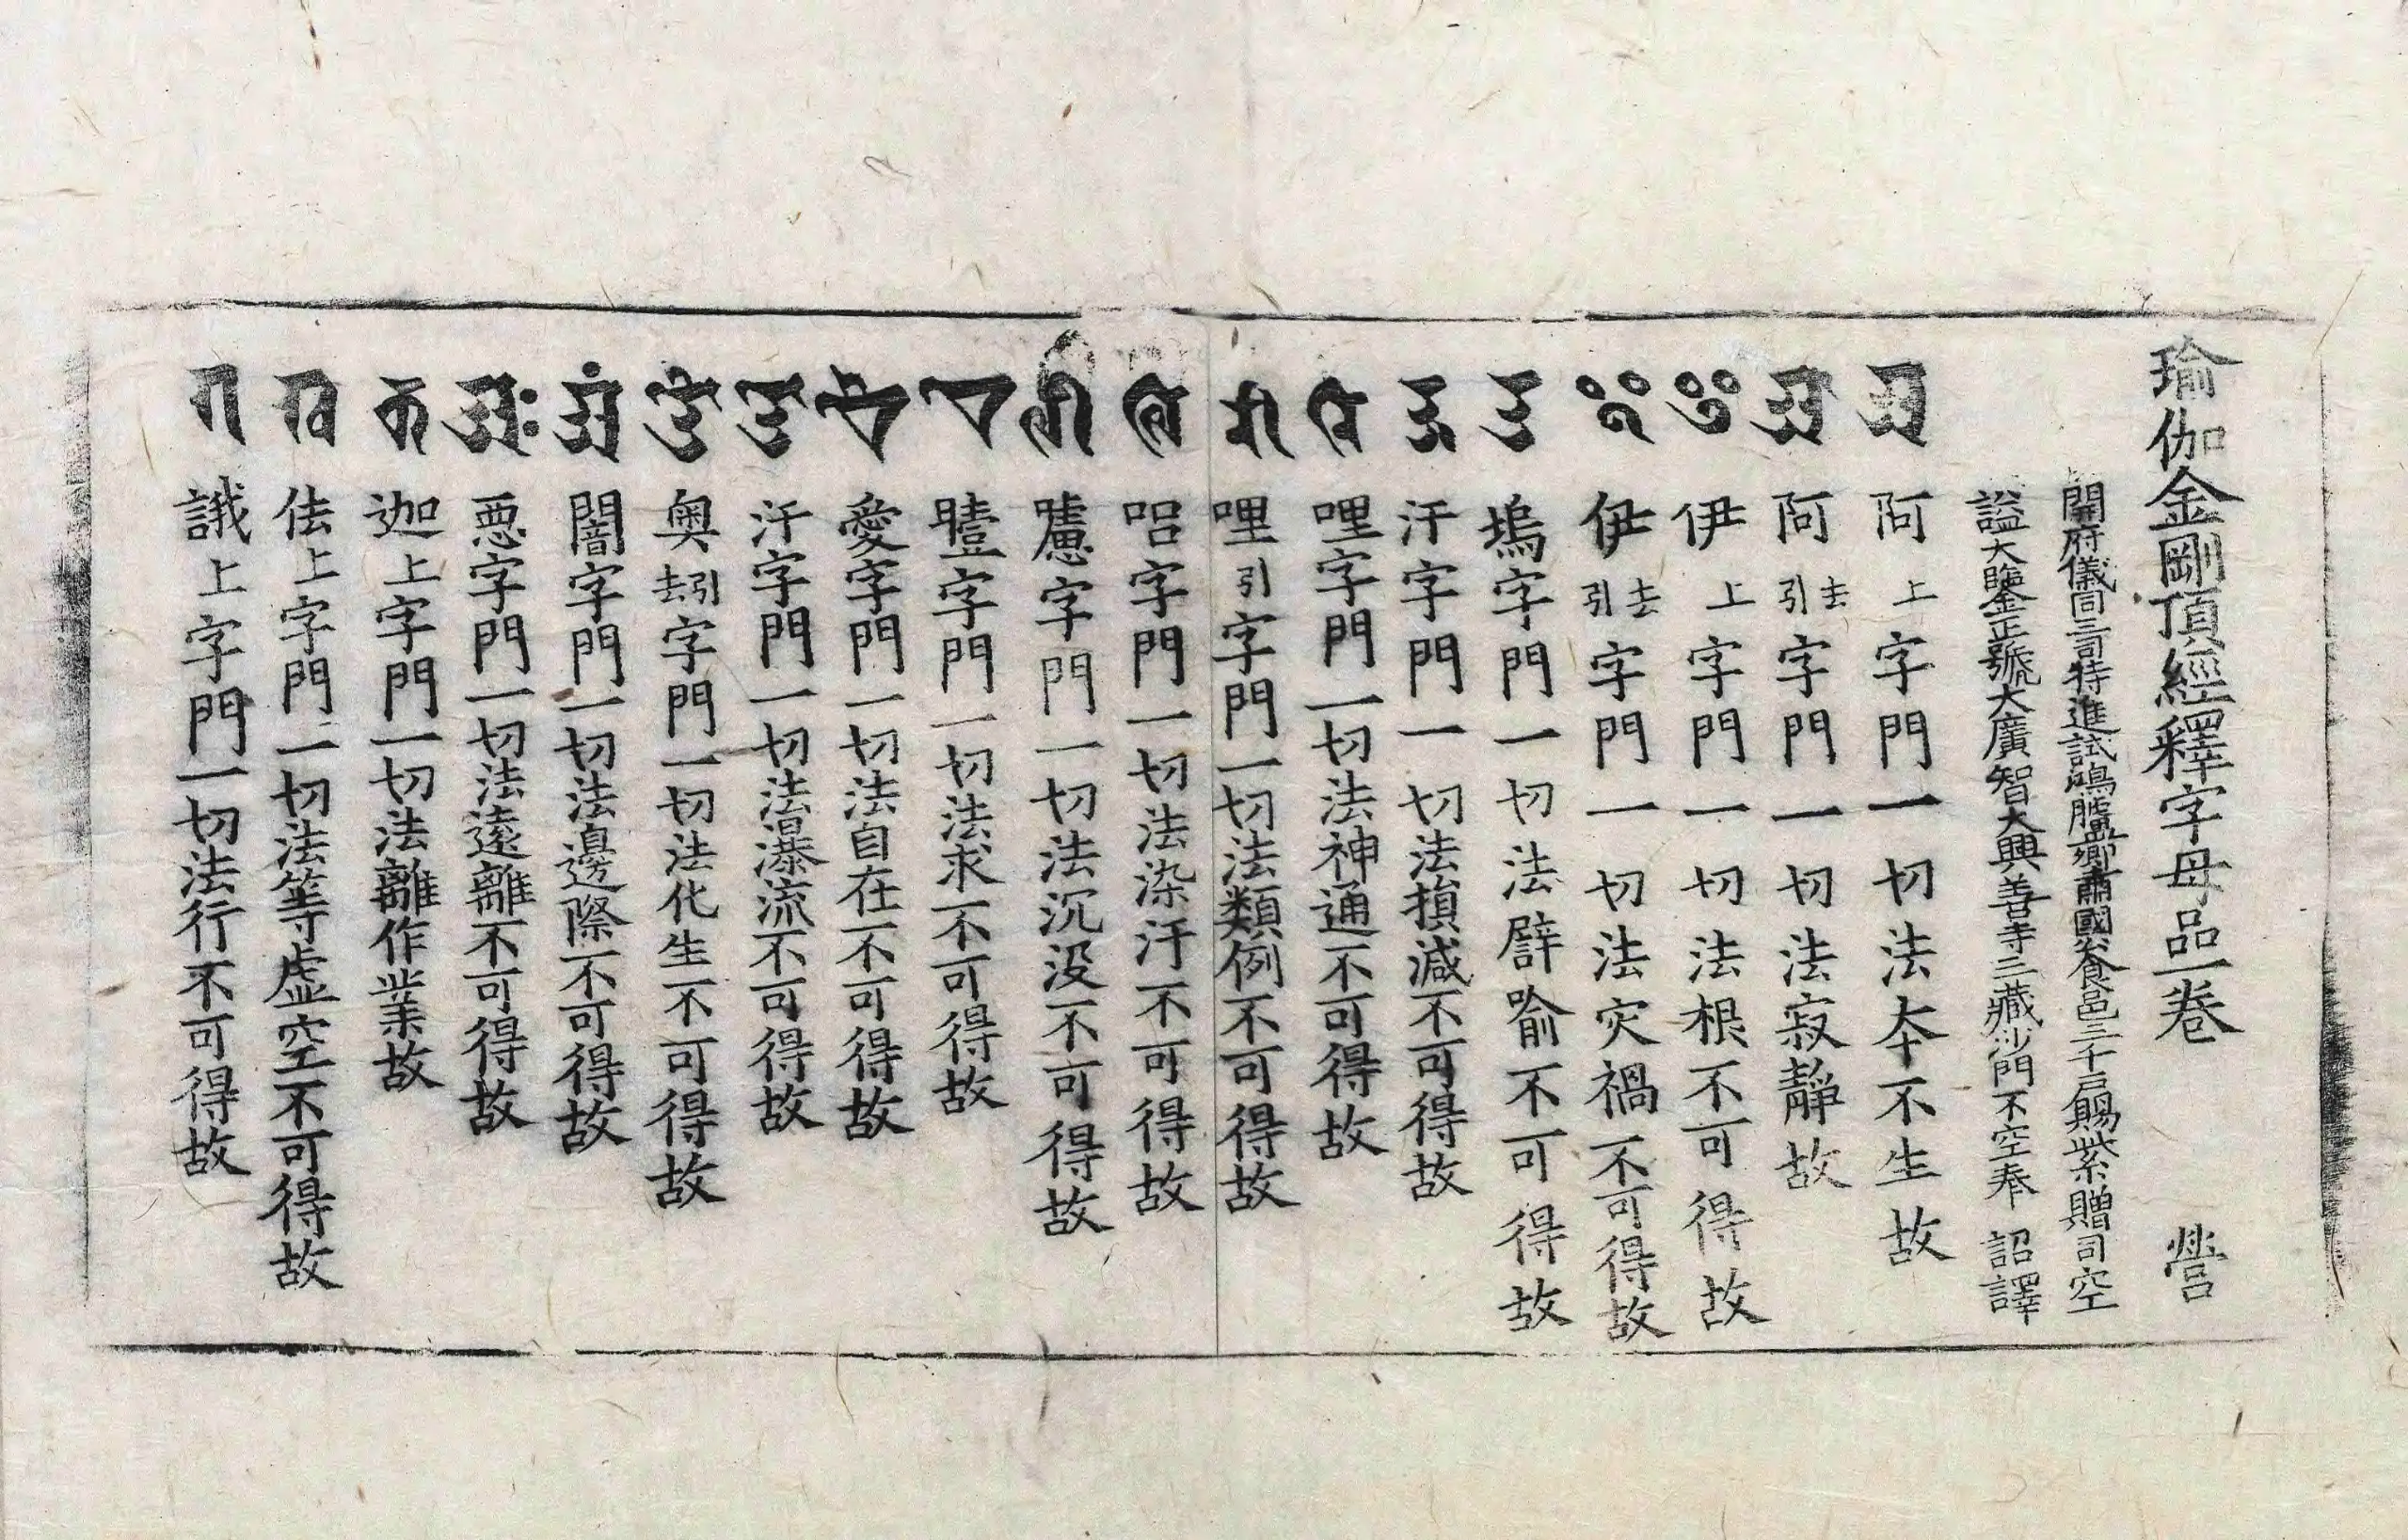 瑜伽金剛頂經釋字母品一卷 營
開府儀同三司特進試鴻臚卿肅國公食邑三千戶賜紫贈司空
謚大鑒正號大廣智大興善寺三藏沙門不空奉 詔譯
𑖀 阿上字門一切法本不生故
𑖁 阿引去字門一切法寂靜故
𑖂 伊上字門一切法根不可得故
𑖃 伊引去字門一切法灾禍不可得故
𑖄 塢字門一切法譬喻不可得故
𑖅 汙字門一切法損減不可得故
𑖆 哩字門一切法神通不可得故
𑖇 哩引字門一切法類例不可得故
𑖈 呂字門一切法染汙不可得故
𑖉 嚧字門一切法沉沒不可得故
𑖊 曀字門一切法求不可得故
𑖋 愛字門一切法自在不可得故
𑖌 汙字門一切法瀑流不可得故
𑖍 奧引去字門一切法化生不可得故
𑖀𑖽 闇字門一切法邊際不可得故
𑖀𑖾 惡字門一切法遠離不可得故
𑖎 迦上字門一切法離作業故
𑖏 佉上字門一切法等虛空不可得故
𑖐 誐上字門一切法行不可得故